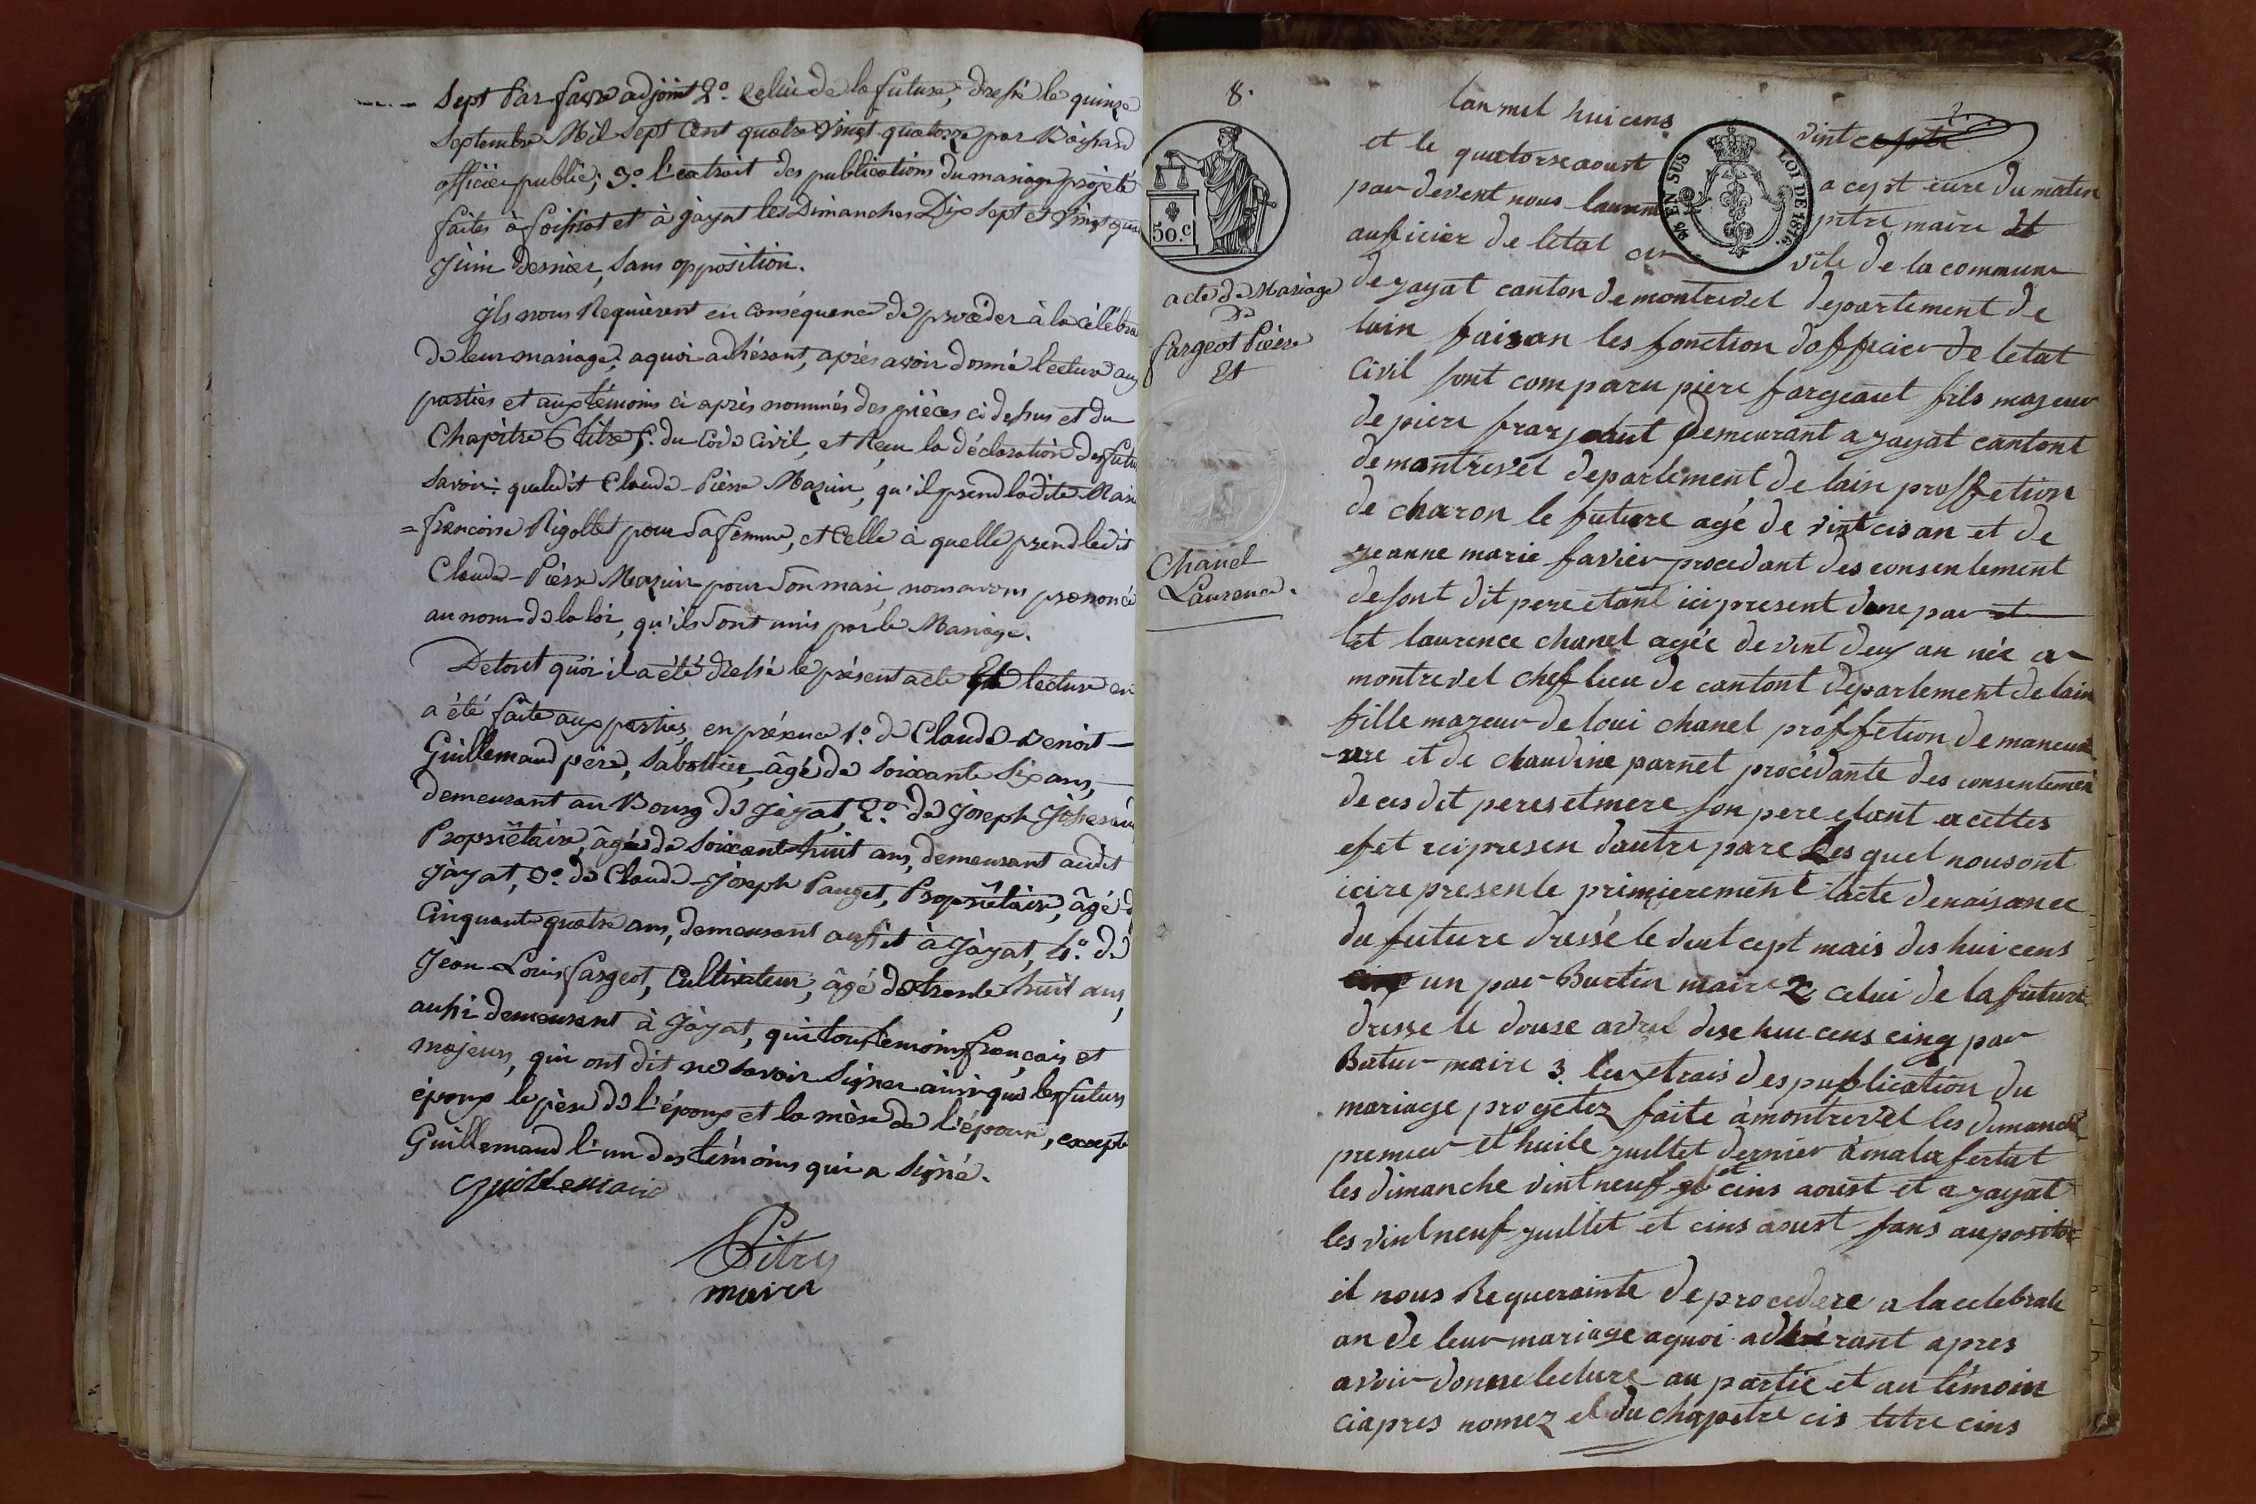 sept Par favre adjoint 2.º Celui de la future, dressé le quinze
Septembre Mil sept Cent quatre Vingt quatorze par Boissard
officier public; 3.º l'extrait des publications du mariage projeté
faites à foissiat et à jàyat les Dimanches Dix sept et Vingt quat
Juin dernier, sans opposition.
Ils nous Requièrent en conséquence de procéder à la célébra
de leur mariage, aquoi adhérant, après avoir donné lecture aux
parties et aux témoins ci après nommés des pièces ci dessus et du
Chapitre 6 titre 5.e du Code Civil, et Reçu la déclaration des futur
Savoir: que ledit Claude-Pièrre Mazuir, qu'il prend ladite Marie
=francoise Rigollet pour sa femme, et Celle à quelle prend ledit
Claude-Pièrre Mazuir pour son mari, nous avons prononcé
au nom de la loi, qu'ils sont unis par le Mariage.
De tout quoi il a été dressé le présent acte Et lecture en
a été faite aux parties, en présence 1.º de Claude-Benoit
Guillemaud père, sabottier, âgé de soixante Six ans,
demeurant au Bourg de Jàyat, 2.º de Joseph
Propriétaire, âgé de soixante huit ans, demeurant audit
Jàyat, 3.º de Claude-Joseph Pauget, Propriétaire, âgé d
Cinquante quatre ans, demeurant aussi à Jàyat, 4.º de
Jean-Louis fargeot, Cultivateur, âgé de trente huit ans,
aussi demeurant à Jàyat, qui tous témoins français et
majeurs, qui ont dit ne savoir signer ainsi que les futurs
époux le père de l'époux et la mère de l'épouse, excepté
Guillemaud l'un des témoins qui a signé.
Guillemaud
Pitry
maire
8.
50.c
acte de Mariage
De
fargeot Pièrre
Et
Chanel
Laurence.
25 EN SUS
LOI DE 1816.
lan mil huicens vint
et le quatorse aoust a cept eure du maten
par devent nous laurent pitre maire et
auficier de letat ci vile de la commune
de yayat canton de montrevel departement de
lain faisan les fonction dofficier de letat
Civil sont comparu piere fargeaut fils mageur
de piere frargeaut Demeurant a yayat cantont
de montrevel departement de lain proffetion
de charon le future agé de vint cis an et de
jeanne marie favier procedant des consentement
de sont dit pere étant ici present dune par et
et laurence chanel agée de vint deux an née a
montrevel chef lieu de cantont departement de lain
fille mageur de loui chanel proffetion de maneuv
-vre et de claudine parnet procédante des consentemen
de ces dit peres et mere son pere etant a cettes
efet ici presen dautre pare Les quel nous ont
icire presente primierement lacte denaisance
du future dressé le vint cept mais dis hui cens
un par Burtin maire 2 celui de la future
dresse le douse avril dise hui cens cinq par
Batur maire 3. lextrais des publication du
mariage progetez faite à montrevel les dimanche
premier et huite juillet dernier a malafertat
les dimanche vint neuf et cins aoust et a yayat
les vint neuf juillet et cins aoust sans auposition
il nous Requerainte de procedere a la celebrati
on de leur mariage aquoi adhérant apres
avoir donne lecture au partie et au témoin
ciapres nomez et du chapitre cis titre cins